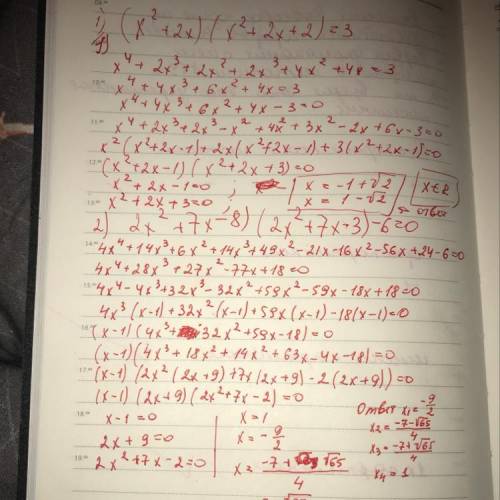 1) (x² + 2x) (x² + 2x + 2) = 3
x⁴ + 2x³ + 2x² + 2x³ + 4x² + 4x = 3
x⁴ + 4x³ + 6x² + 4x = 3
x⁴ + 4x³ + 6x² + 4x - 3 = 0
x⁴ + 2x³ + 2x³ - x² + 4x² + 3x² - 2x + 6x - 3 = 0
x² (x² + 2x - 1) + 2x (x² + 2x - 1) + 3 (x² + 2x - 1) = 0
(x² + 2x - 1) (x² + 2x + 3) = 0
x² + 2x - 1 = 0 ; x = -1 + √2 x∈R
x² + 2x + 3 = 0 x = 1 - √2 ответ
2) 2x² + 7x - 8) (2x² + 7x - 3) - 6 = 0
4x⁴ + 14x³ + 6x² + 14x³ + 49x² - 21x - 16x² - 56x + 24 - 6 = 0
4x⁴ + 28x³ + 27x² - 77x + 18 = 0
4x⁴ - 4x³ + 32x³ - 32x² + 59x² - 59x - 18x + 18 = 0
4x³ (x - 1) + 32x² (x - 1) + 59x (x - 1) - 18 (x - 1) = 0
(x - 1) (4x³ + 32x² + 59x - 18) = 0
(x - 1) (4x³ + 18x² + 14x² + 63x - 4x - 18) = 0
(x - 1) (2x² (2x + 9) + 7x (2x + 9) - 2 (2x + 9)) = 0
(x - 1) (2x + 9) (2x² + 7x - 2) = 0
x - 1 = 0
2x + 9 = 0
2x² + 7x - 2 = 0
x = 1
x = -9/2
x = -7 + √65 / 4
Ответ x₁ = -9/2
x₂ = -7 - √65 / 4
x₃ = -7 + √65 / 4
x₄ = 1